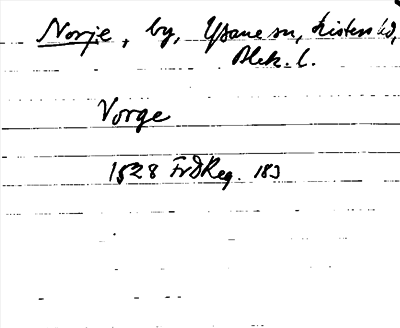 Norje, by, Ysane sn, Listers hd,
Blek. l.
Vorge
1528 FrdReg. 183